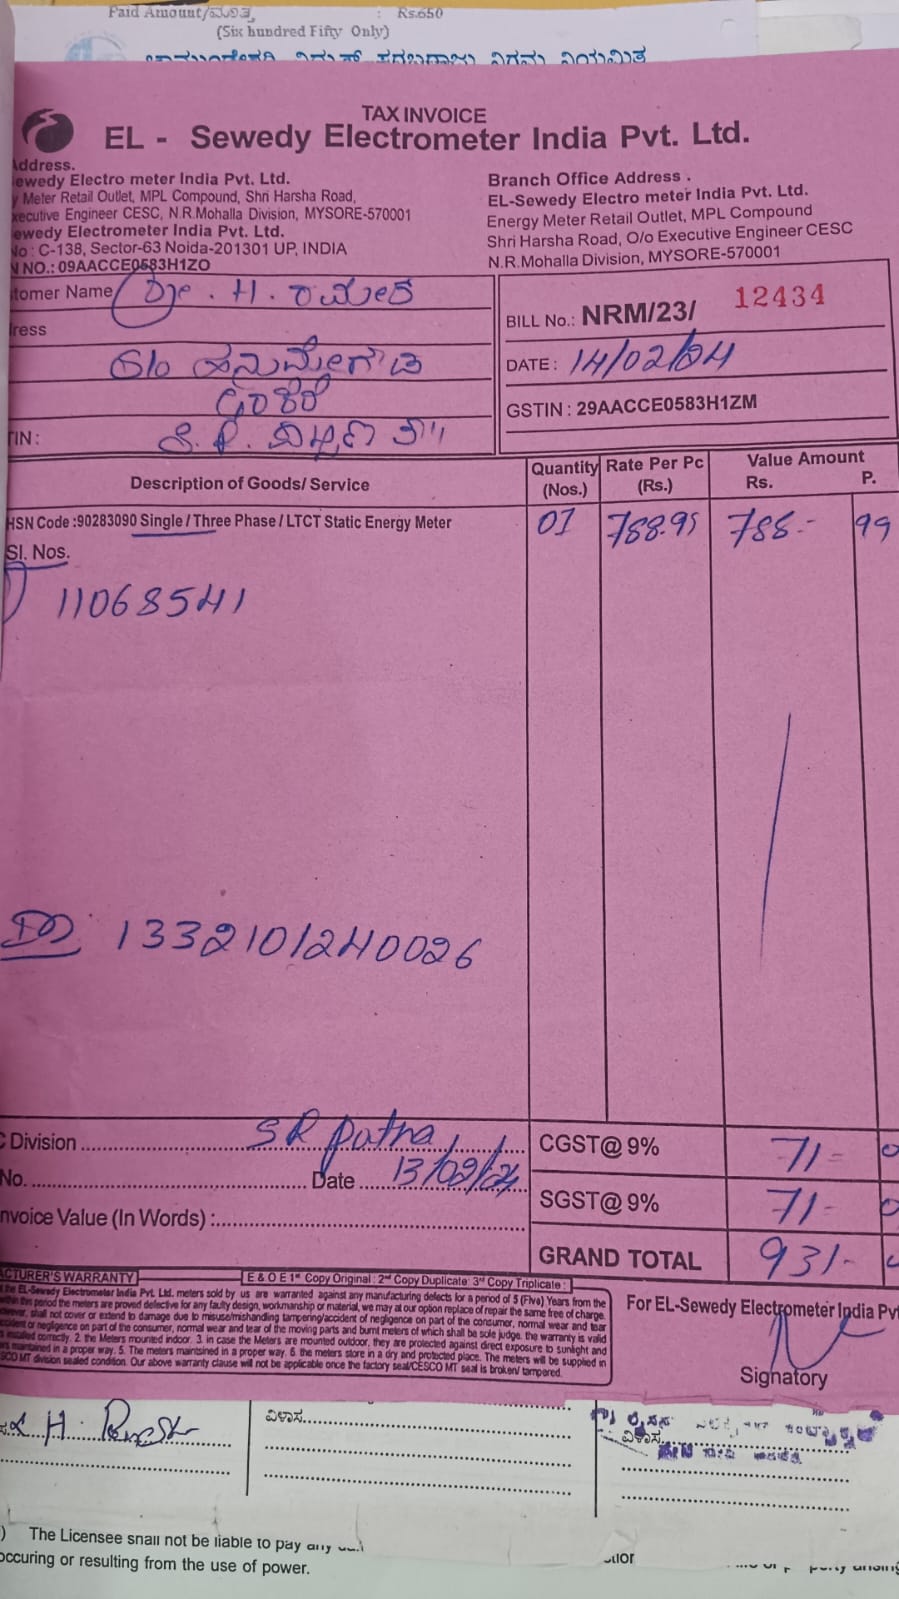 Paid Amount/ಮೊತ್ತ : Rs.650
(Six hundred Fifty Only)
TAX INVOICE
EL - Sewedy Electrometer India Pvt. Ltd.
Address.
Sewedy Electro meter India Pvt. Ltd.
Meter Retail Outlet, MPL Compound, Shri Harsha Road,
Executive Engineer CESC, N.R.Mohalla Division, MYSORE-570001
Sewedy Electrometer India Pvt. Ltd.
No : C-138, Sector-63 Noida-201301 UP, INDIA
N NO.: 09AACCE0583H1ZO
Branch Office Address .
EL-Sewedy Electro meter India Pvt. Ltd.
Energy Meter Retail Outlet, MPL Compound
Shri Harsha Road, O/o Executive Engineer CESC
N.R.Mohalla Division, MYSORE-570001
stomer Name ಶ್ರೀ . H. ರಮೇಶ
ress
S/o ಹನುಮೇಗೌಡ
TIN :
BILL No.: NRM/23/ 12434
DATE : 14/02/24
GSTIN : 29AACCE0583H1ZM
Description of Goods/ Service Quantity (Nos.) Rate Per Pc (Rs.) Value Amount Rs. P.
HSN Code :90283090 Single / Three Phase / LTCT Static Energy Meter 01 788.95 788- 99
Sl. Nos.
11068541
1332101240026
C Division SR Patna
No. Date 13/02/24
nvoice Value (In Words) :
CGST@ 9% 71-
SGST@ 9% 71-
GRAND TOTAL 931-
ACTURER'S WARRANTY E & O E 1st Copy Original : 2nd Copy Duplicate: 3rd Copy Triplicate :
the EL-Sewedy Electrometer India Pvt. Ltd. meters sold by us are warranted against any manufacturing defects for a period of 5 (Five) Years from the
within this period the meters are proved defective for any faulty design, workmanship or material, we may at our option replace of repair the same free of charge.
however, shall not cover or extend to damage due to misuse/mishandling tampering/accident of negligence on part of the consumer, normal wear and tear
accident or negligence on part of the consumer, normal wear and tear of the moving parts and burnt meters of which shall be sole judge. the warranty is valid
installed correctly. 2. the Meters mounted indoor. 3. in case the Meters are mounted outdoor, they are protected against direct exposure to sunlight and
in a proper way. 5. The meters maintained in a proper way. 6. the meters store in a dry and protected place. The meters will be supplied in
CESCO MT division sealed condition. Our above warranty clause will not be applicable once the factory seal/CESCO MT seal is broken/ tampered.
For EL-Sewedy Electrometer India Pvt
Signatory
ವಿಳಾಸ
ವಿಳಾಸ
) The Licensee shall not be liable to pay any
occuring or resulting from the use of power.